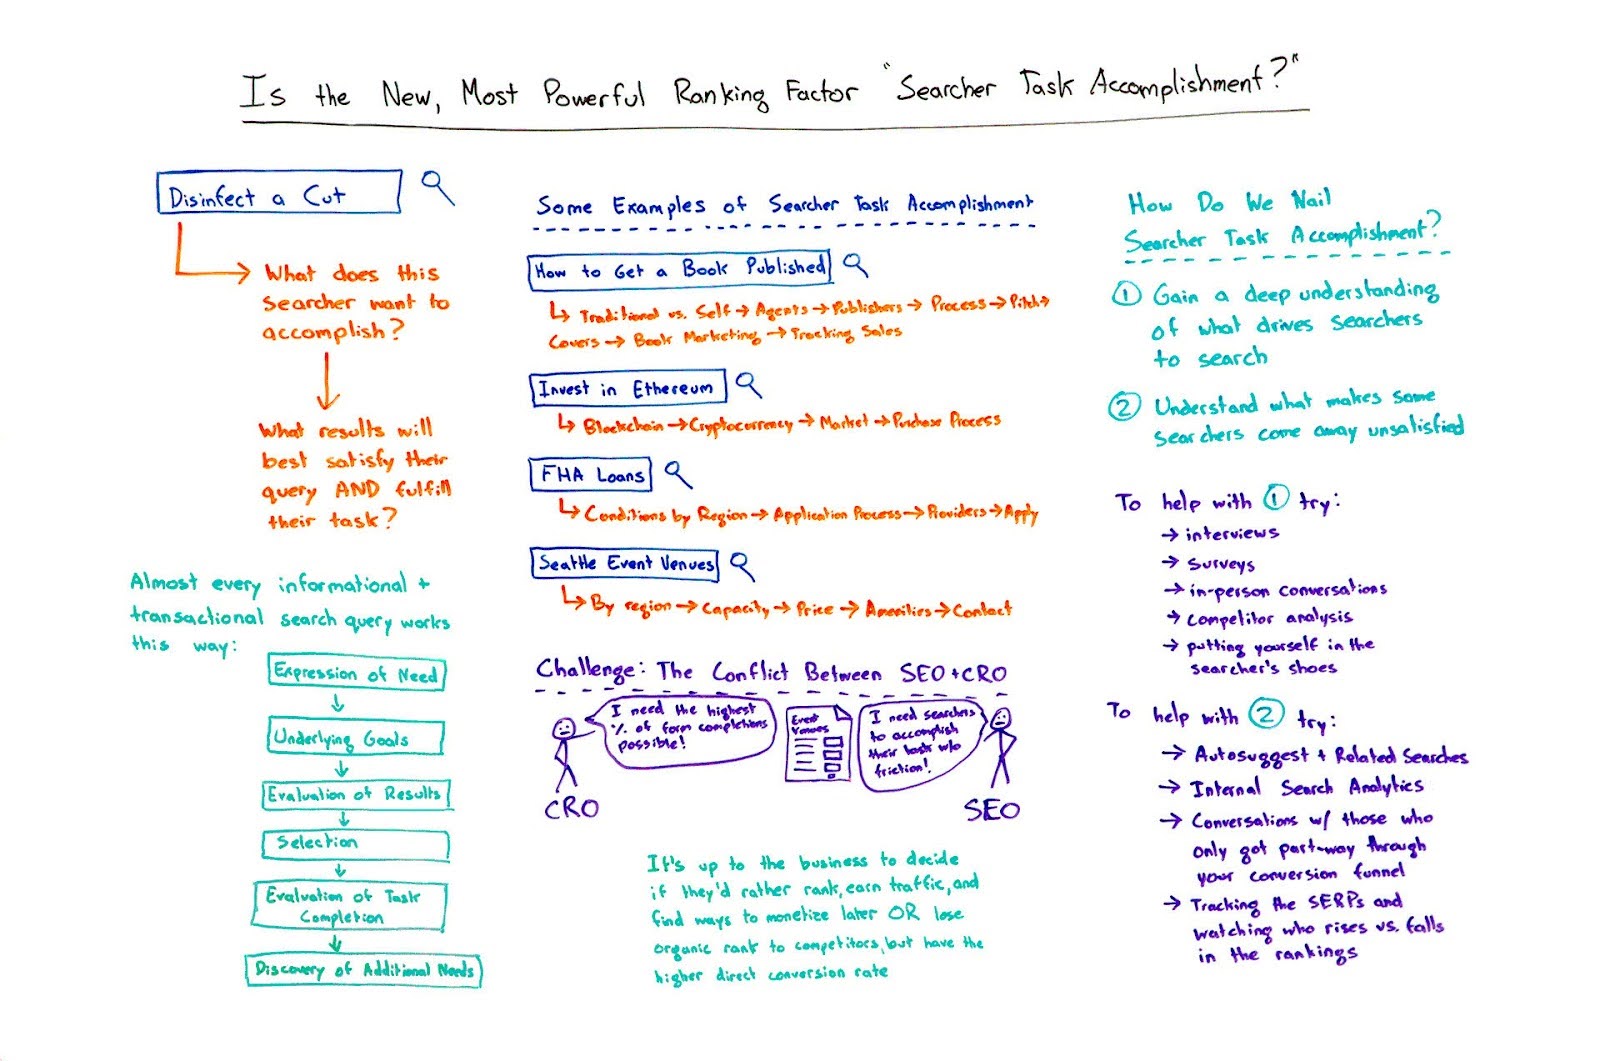 Is the New, Most Powerful Ranking Factor "Searcher Task Accomplishment?"
Disinfect a Cut
What does this
searcher want to
accomplish?
What results will
best satisfy their
query AND fulfill
their task?
Almost every informational +
transactional search query works
this way:
Expression of Need
Underlying Goals
Evaluation of Results
Selection
Evaluation of Task
Completion
Discovery of Additional Needs
Some Examples of Searcher Task Accomplishment
How to Get a Book Published
↳ Traditional vs. Self → Agents → Publishers → Process → Pitch →
Covers → Book Marketing → Tracking Sales
Invest in Ethereum
↳ Blockchain → Cryptocurrency → Market → Purchase Process
FHA Loans
↳ Conditions by Region → Application Process → Providers → Apply
Seattle Event Venues
↳ By region → Capacity → Price → Amenities → Contact
Challenge: The Conflict Between SEO + CRO
I need the highest
% of form completions
possible!
CRO
Event
Venues
I need searchers
to accomplish
their task w/o
friction!
SEO
It's up to the business to decide
if they'd rather rank, earn traffic, and
find ways to monetize later OR lose
organic rank to competitors, but have the
higher direct conversion rate
How Do We Nail
Searcher Task Accomplishment?
① Gain a deep understanding
of what drives searchers
to search
② Understand what makes some
searchers come away unsatisfied
To help with ① try:
→ interviews
→ surveys
→ in-person conversations
→ competitor analysis
→ putting yourself in the
searcher's shoes
To help with ② try:
→ Autosuggest + Related Searches
→ Internal Search Analytics
→ Conversations w/ those who
only got part-way through
your conversion funnel
→ Tracking the SERPs and
watching who rises vs. falls
in the rankings